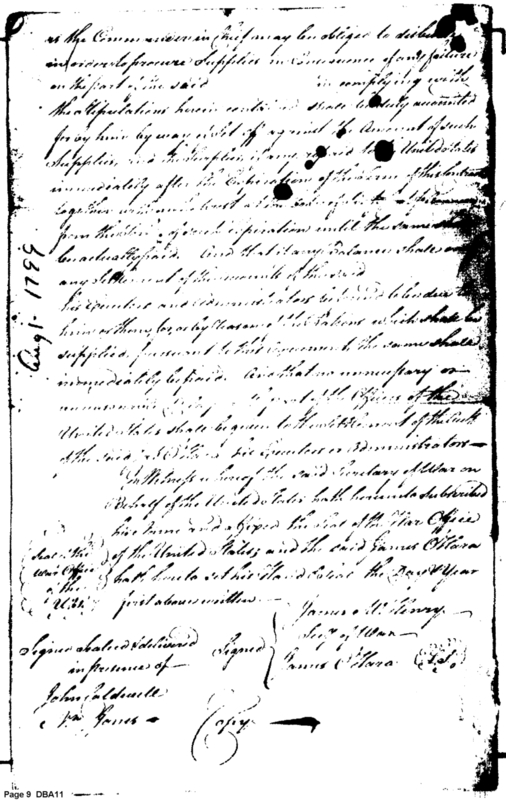 as the Commander in Chief may be obliged to disburse
in order to procure Supplies in Consequence of any failure
on the part of the said in complying with
the stipulations herein contained shall be duly accounted
for by him by way of Set off against the Amount of such
Supplies, and the surplus, if any repaid to the United States
immediately after the Expiration of the term of this Contract
together with interest at the rate of
from the time of such expiration until the same shall
be actually paid. And that if any Balance shall on
any settlement of the accounts of the said
his Executors and Administrators be found to be due
him or them for or by reason of the Rations which shall be
supplied pursuant to this Agreement the same shall
immediately be paid. And that no unnecessary or
unreasonable delay on the part of the Officers of the
United States shall be given to the settlement of the
of the said his Executors or Administrators
In Witness whereof the said Secretary of War on
Behalf of the United States hath hereunto subscribed
his name and affixed the Seal of the War Office
of the United States; and the said James O'Hara
hath hereto set his Hand & Seal the Day & Year
first above written
Seal of the
War Office
of the
U. S.
James McHenry
Secy of War
Signed Sealed & delivered
in presence of
Signed
James O'Hara L.S.
John Caldwell
Wm Jones
Copy
Aug 1. 1799
Page 9 DBA11